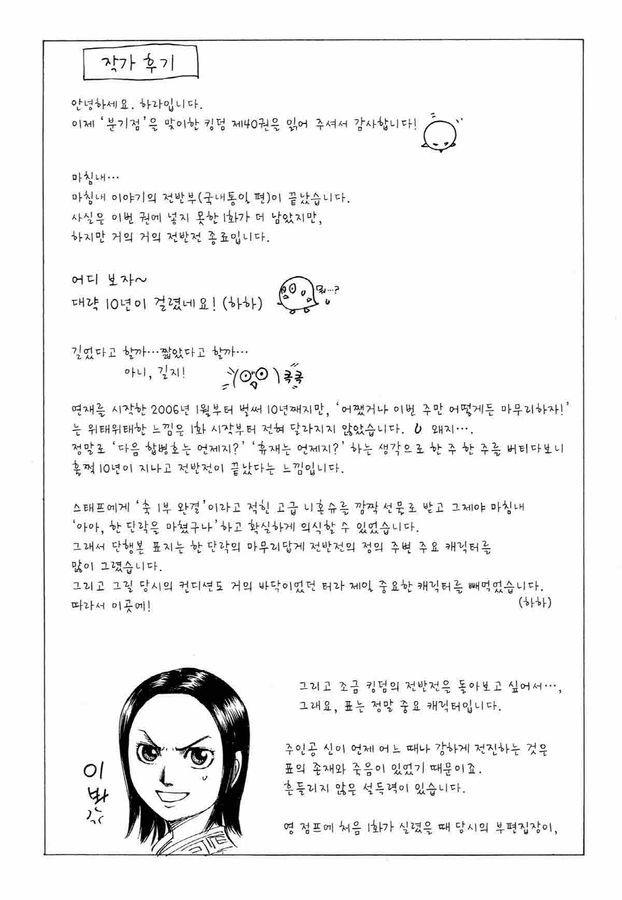 작가 후기
안녕하세요. 하라입니다.
이제 '분기점'을 맞이한 킹덤 제40권을 읽어 주셔서 감사합니다!
마침내…
마침내 이야기의 전반부(국내통일 편)이 끝났습니다.
사실은 이번 권에 넣지 못한 1화가 더 남았지만,
하지만 거의 거의 전반전 종료입니다.
어디 보자~
대략 10년이 걸렸네요! (하하)
뭐…?
길었다고 할까…짧았다고 할까…
아니, 길지!
콕콕
연재를 시작한 2006년 1월부터 벌써 10년째지만, '어쨌거나 이번 주만 어떻게든 마무리하자!'
는 위태위태한 느낌은 1화 시작부터 전혀 달라지지 않았습니다. 왜지….
정말로 '다음 합병호는 언제지?' '휴재는 언제지?' 하는 생각으로 한 주 한 주를 버티다보니
훌쩍 10년이 지나고 전반전이 끝났다는 느낌입니다.
스태프에게 '축 1부 완결'이라고 적힌 고급 니혼슈를 깜짝 선물로 받고 그제야 마침내
'아아, 한 단락을 마쳤구나'하고 확실하게 의식할 수 있었습니다.
그래서 단행본 표지는 한 단락의 마무리답게 전반전의 정의 주변 주요 캐릭터를
많이 그렸습니다.
그리고 그릴 당시의 컨디션도 거의 바닥이었던 터라 제일 중요한 캐릭터를 빼먹었습니다.
따라서 이곳에! (하하)
그리고 조금 킹덤의 전반전을 돌아보고 싶어서…,
그래요, 표는 정말 중요 캐릭터입니다.
주인공 신이 언제 어느 때나 강하게 전진하는 것은
표의 존재와 죽음이 있었기 때문이죠.
흔들리지 않은 설득력이 있습니다.
영 점프에 처음 1화가 실렸을 때 당시의 부편집장이,